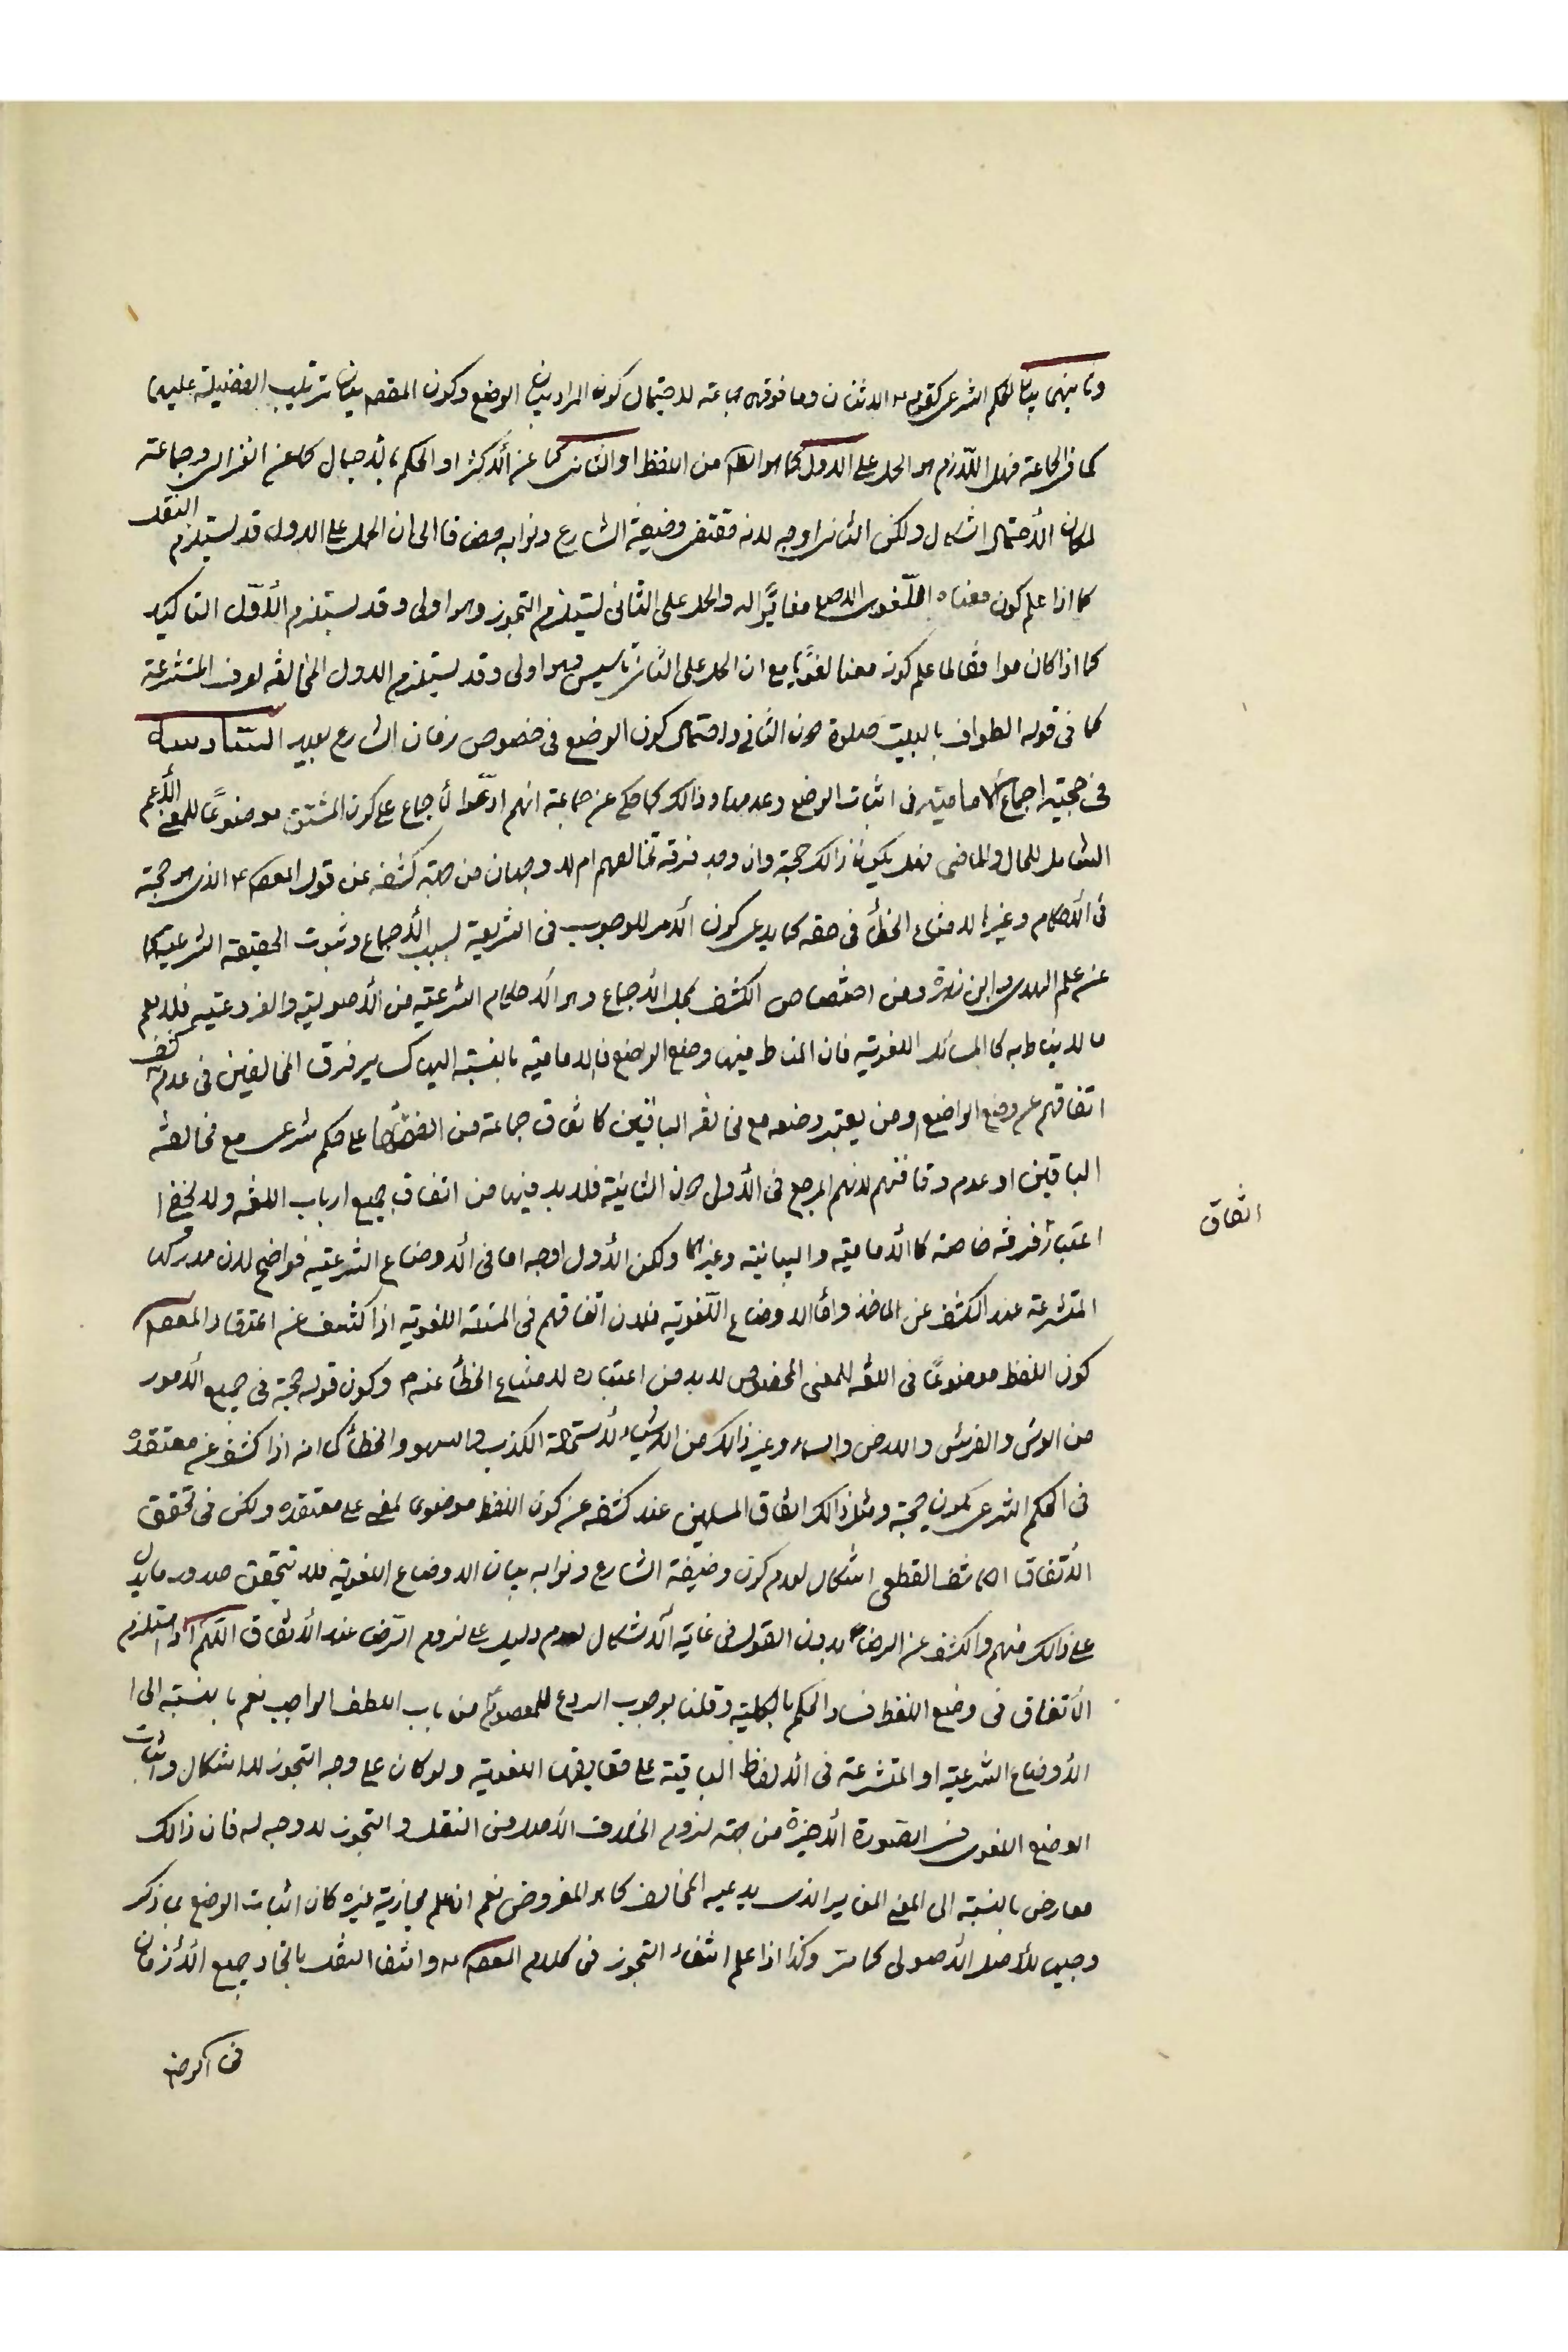 وثانيهما بيان الحكم الشرعى كقوله الاثنان وما فوقهما جماعة لاحتمال كون المراد بيان الوضع وكون المقصم بيان ترتيب الفضيلة عليهما
كما فى الجماعة فهل اللّازم هو الحمل على الاول كما هو الظم من اللفظ او الثانى كما عن الأكثر او الحكم بالأجمال كما عن الغزالى وجماعة
لمكان الأحتمال اشكال ولكن الثانى اوجه لانه مقتضى وضيفة الشارع ونوابه مضافا الى ان الحمل على الاول قد يستلزم النقل
كما اذا علم كون معناه اللّغوى الاصلى مغايرًا له والحمل على الثانى يستلزم التجوز وهو اولى وقد يستلزم الأوّل التاكيد
كما اذا كان موافقا لما علم كونه معنا لغويّا مع ان الحمل على الثانى تاسيس وهو اولى وقد يستلزم الاول المخالفة لعرف المتشرعة
كما فى قوله الطواف بالبيت صلوة دون الثانى واحتمال كون الوضع فى خصوص زمان الشارع بعيد السّادسة
فى حجية اجماع الأمامية فى اثبات الوضع وعدمها وذالك كما حكى عن جماعة انهم ادّعوا الأجماع على كون المشتق موضوعًا للمعنى الأعم
الشامل للحال والماضى فهل يكون ذالك حجة وان وجد فرقة تخالفهم ام لا وجهان من جهة كشفه عن قول المعصم ع الذى هو حجة
فى الأحكام وغيرها لامتناع الخطأ فى حقه كما يدعى كون الأمر للوجوب فى الشريعة لسبب الأجماع وثبوت الحقيقة الشرعية كما
عن علم الهدى وابن زهرة ومن اختصاص الكشف بمحل الأجماع وهو الأحكام الشرعية من الأصولية والفروعية فلا يعلم
ما لا يناط به كالمسائل اللغوية فان المناط فيها وضع الواضع فالامامية بالنسبة اليها كساير فرق المخالفين فى عدم كشف
اتفاقهم عن وضع الواضع ومن يعتبر وضعه مع مخالفة الباقين كاتفاق جماعة من الفقهاء على حكم شرعى مع مخالفة
الباقين او عدم وفاقهم لانهم المرجع فى الأول دون الثانية فلا بد فيها من اتفاق جميع ارباب اللغة ولا يخفى
اتفاق
اعتبار فرقة خاصة كالأمامية والبيانية وغيرها ولكن الأول اوجه اما فى الأوضاع الشرعية فواضح لان مدركها
المتشرعة عند الكشف عن الماخذ واما الاوضاع اللّغوية فلان اتفاقهم فى المسئلة اللغوية اذا كشف عن اعتقاد المعصم
كون اللفظ موضوعًا فى اللغة للمعنى المخصوص لا بد من اعتباره لامتناع الخطأ عنه م وكون قوله حجة فى جميع الأمور
من العرش والفرش والارض والسماء وغير ذالك من الاشياء لأستحالة الكذب والسهو والخطأ كما انه اذا كشف عن معتقده
فى الحكم الشرعى يكون حجة ومثل ذالك اتفاق المسلمين عند كشفه عن كون اللفظ موضوعا لمعنى على معتقده ولكن فى تحقق
الأتفاق الكاشف القطعى اشكال لعدم كون وضيفة الشارع ونوابه بيان الاوضاع اللغوية فلا يتحقق صدور ما يدل
على ذالك منهم والكشف عن الرضاء بدون القول فى غاية الأشكال لعدم دليل على لزوم الرّضا عند الأتفاق اللّهم اذا استلزم
الأتفاق فى وضع اللفظ فساد الحكم بالكلية وقلنا بوجوب الردع للمعصوم من باب اللطف الواجب نعم بالنسبة الى
الأوضاع الشرعية او المتشرعة فى الألفاظ الباقية على حقايقها اللغوية ولو كان على وجه التجوز لا اشكال واثبات
الوضع اللغوى فى الصّورة الأخيرة من جهة لزوم الخلاف الأصل من النقل والتجوز لا وجه له فان ذالك
معارض بالنسبة الى المعنى المغاير الذى يدعيه المخالف كما هو المفروض نعم ان علم مجازية غيره كان اثبات الوضع بما ذكر
وجيها للأصل الأصولى كما مرّ وكذا اذا علم انتفاء التجوز فى كلام المعصم وانتفا النقل باتحاد جميع الأزمان